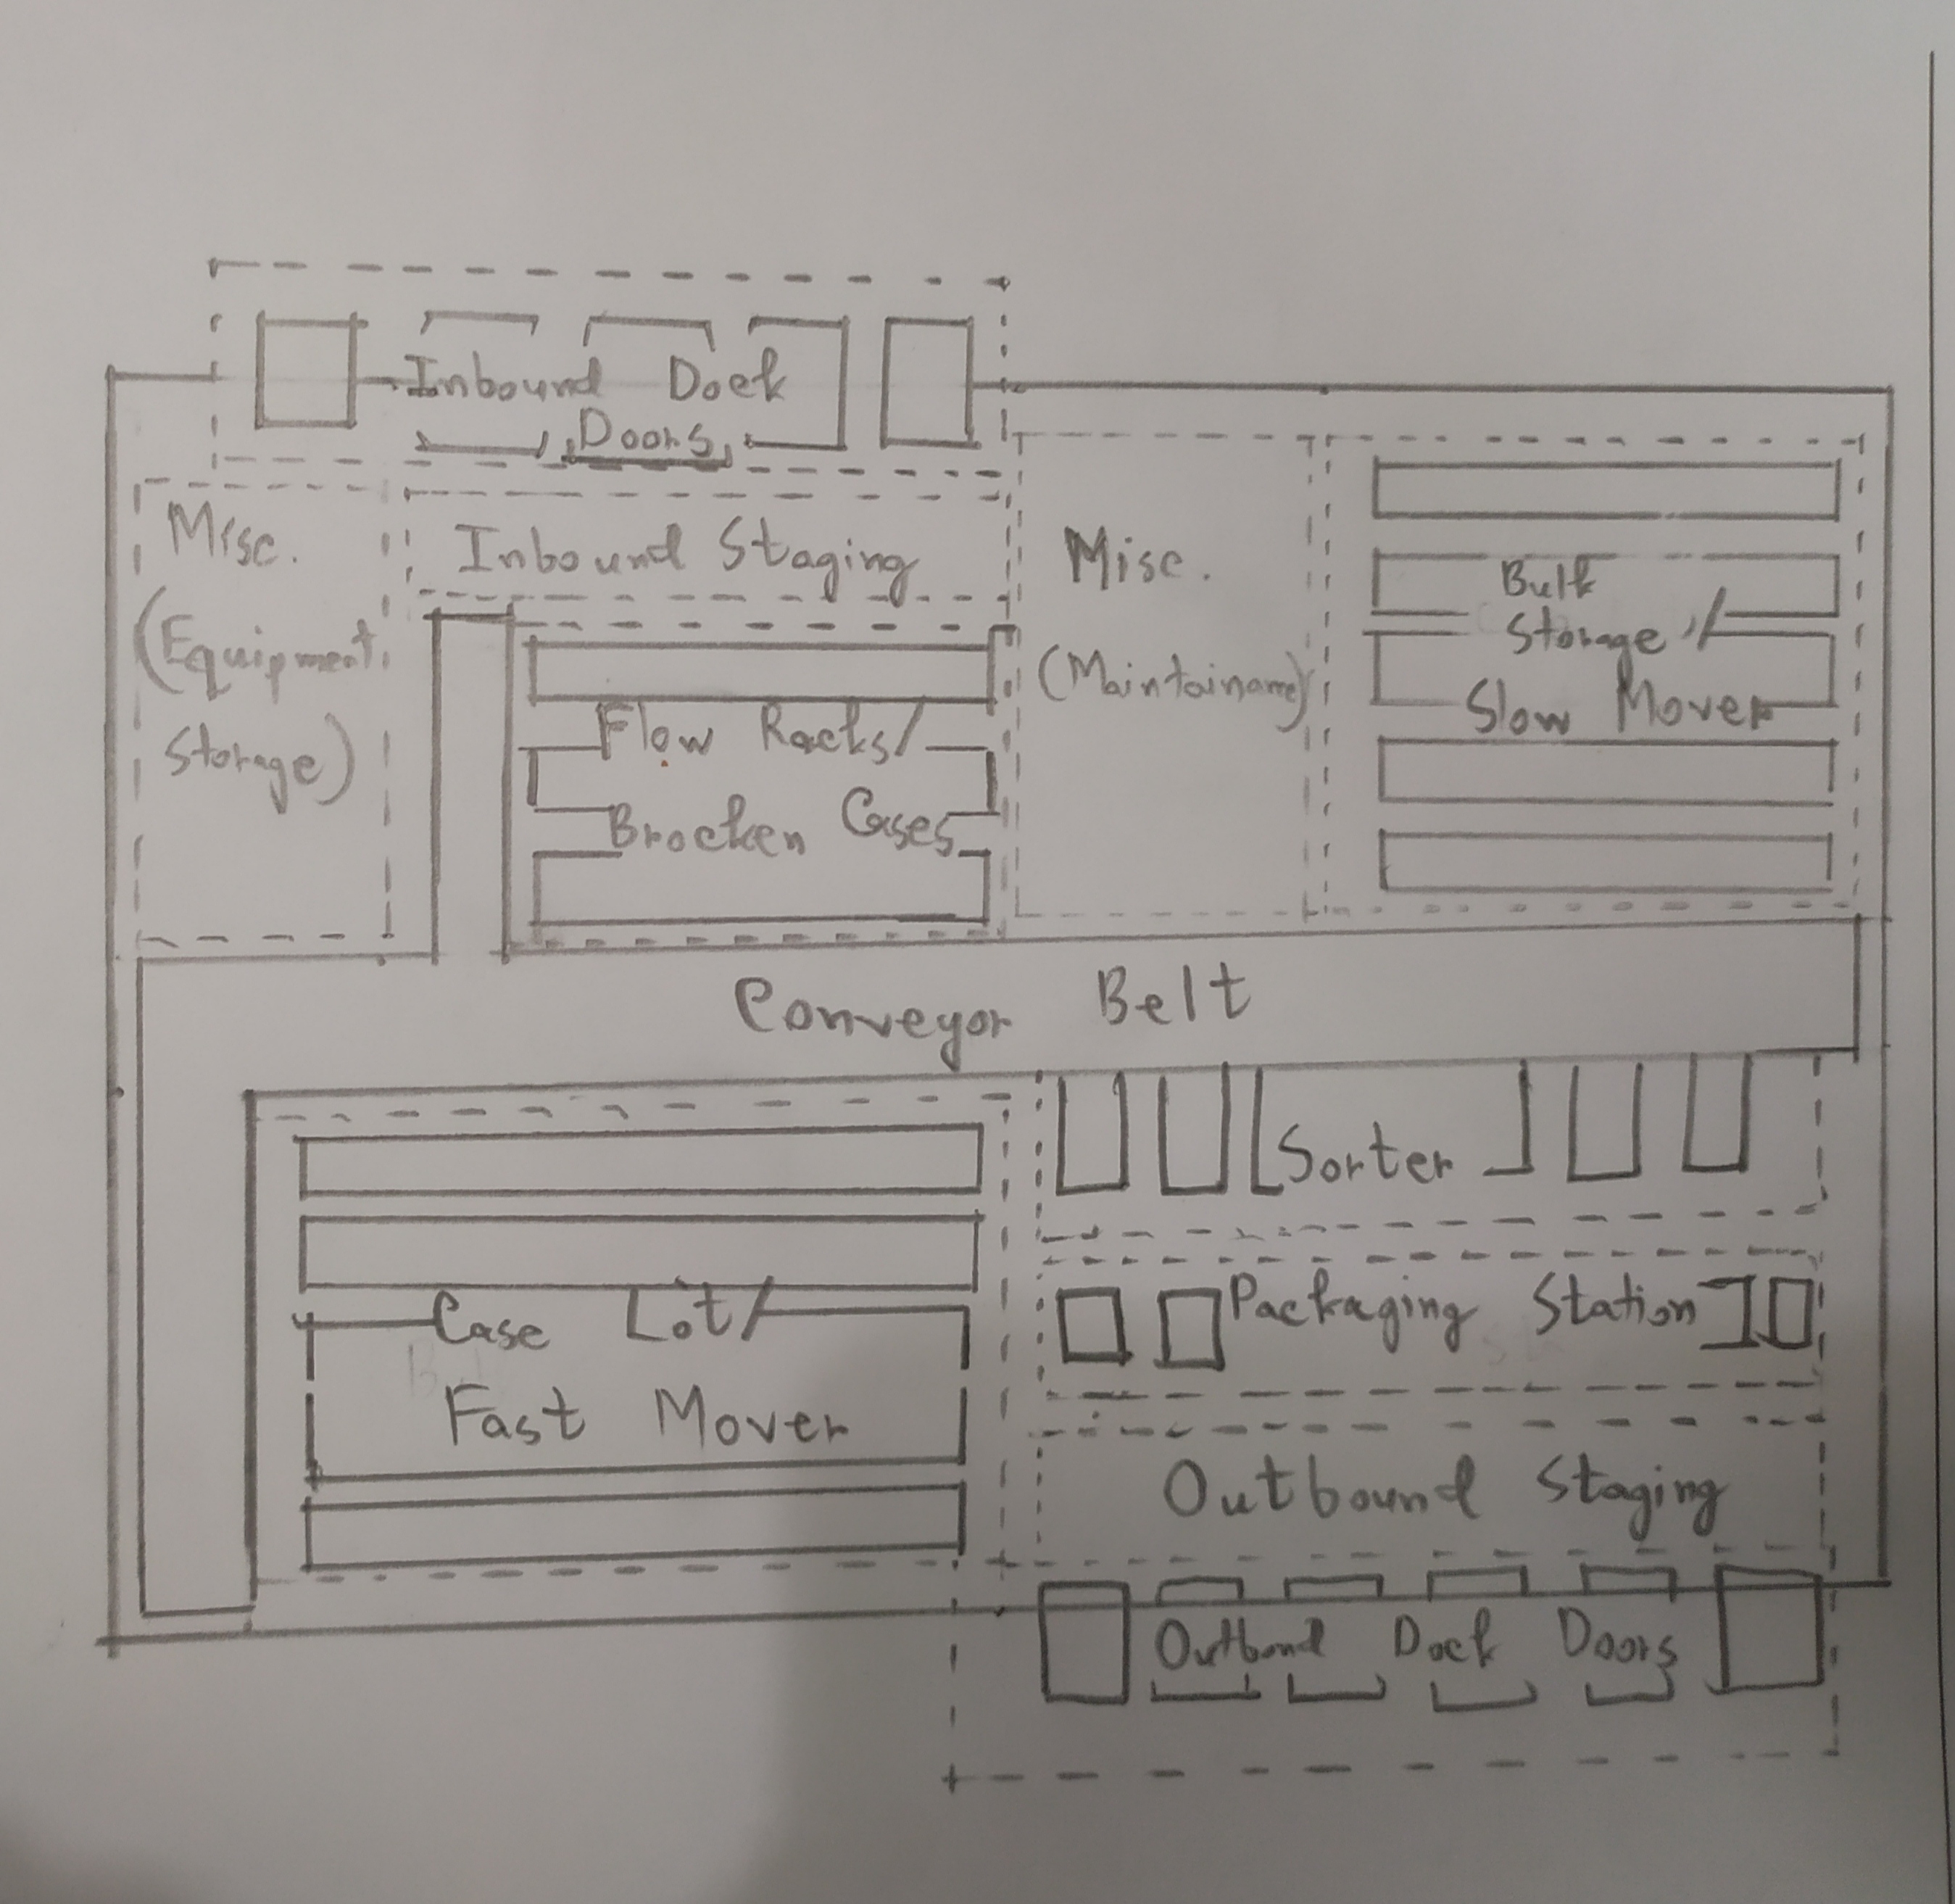 Inbound Dock
Doors
Misc.
(Equipment
Storage)
Inbound Staging
Flow Racks/
Brocken Cases
Misc.
(Maintainame)
Bulk
Storage /
Slow Mover
Conveyor Belt
Case Lot/
Fast Mover
Sorter
Packaging Station
Outbound Staging
Outbond Dock Doors